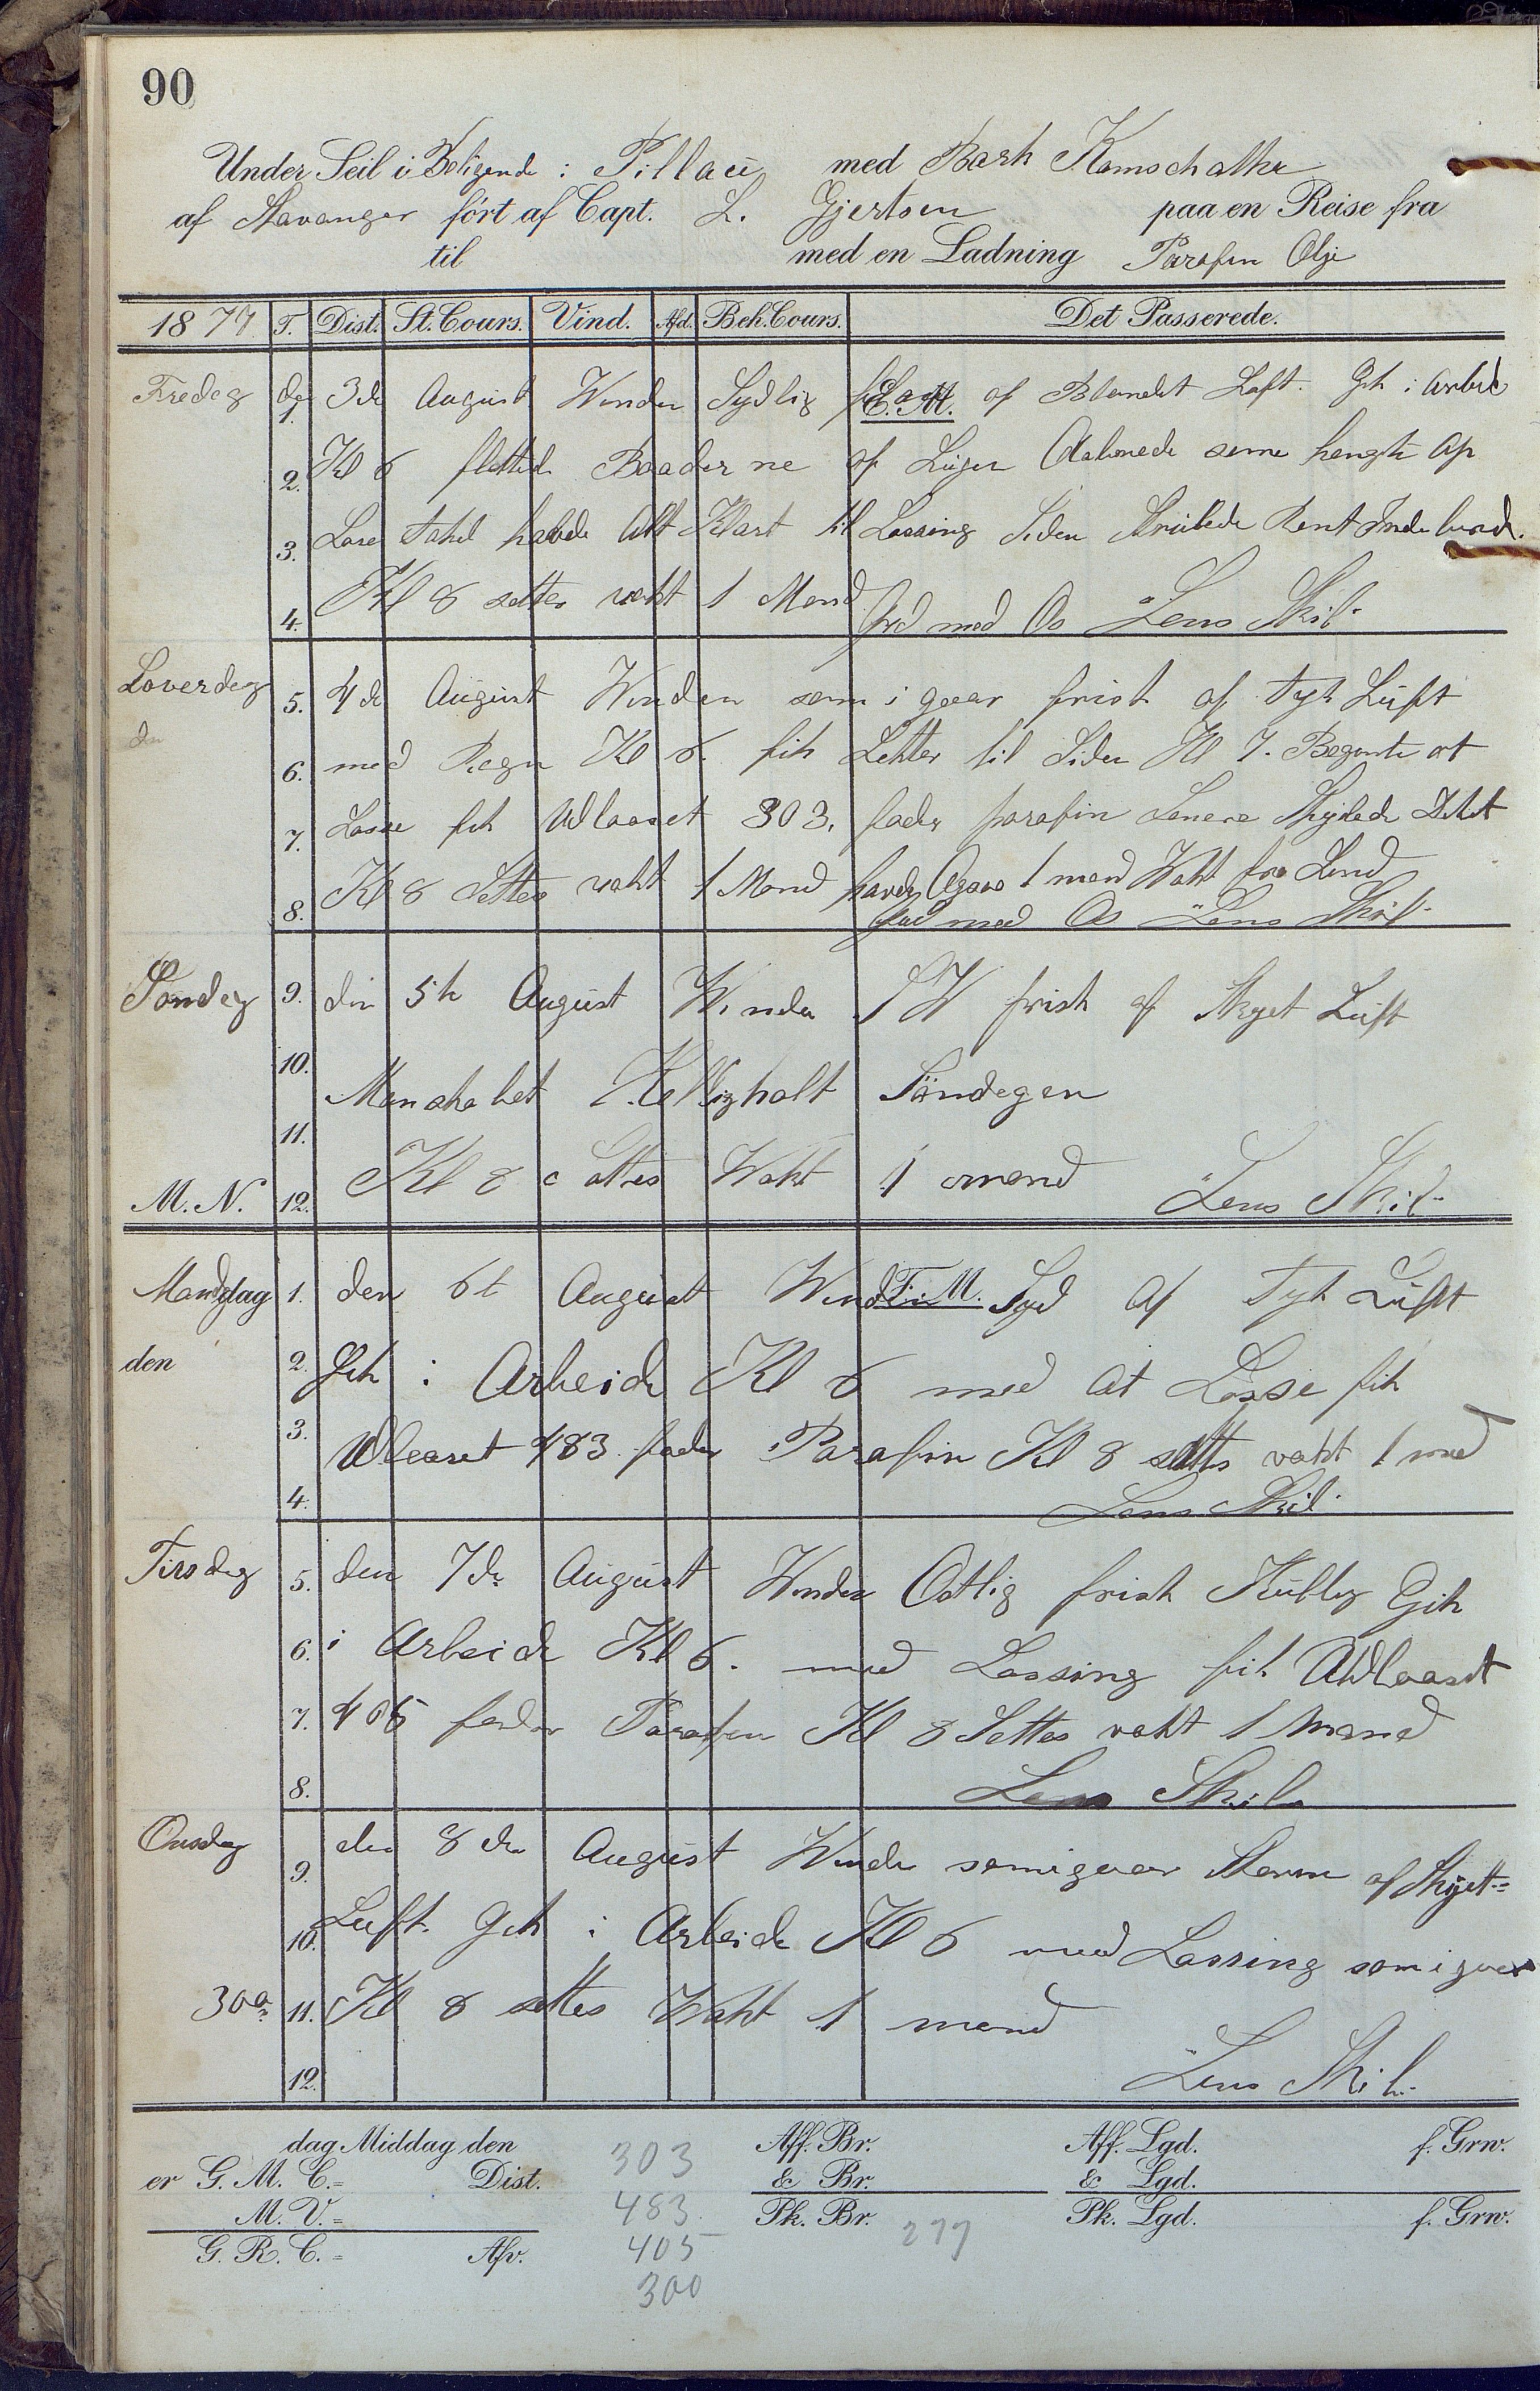 90
Under Seil i Beligende i Pillau med Bark Kamschatka
af Stavanger ført af Capt. L. Gjertsen paa en Reise fra
til med en Ladning Parafin Olje
1877 T. Dist. St. Cours. Vind. Afd. Beh. Cours. Det Passerede.
Fredag den 3de August Winden Sydlig E. M. af Blandet Luft. Gik i Arbeid
1.
2. Kl 6 flettede Baaderne af Luger Aabnede seme hengte Op
3. Lose havde Alt Klart til Lossing Siden Rent
4. Kl 8 settes vakt 1 Mand Gud med Os Lens Skib
Loverdag 5. 4de August Winden som i gaar frisk af Tyk Luft
den 6. med Regn Kl 6. fik Lekter til Siden Kl 7. Begynte at
7. Losse fik Udlaaset 303. fader parafin Senere Dekket
8. Kl 8 Settes vakt 1 Mand havde Ogsaa 1 mand Wakt fra Land
Gud med Os Lens Skib
Søndag 9. din 5te August Winden SW frisk af Skyet Luft
10. Manskabet Helligholt Søndagen
11.
M. N. 12. Kl 8 settes Wakt 1 mand Lens Skib
Mandgdag 1. den 6t August Winden F. M. Syd Af Tyk Luft
den 2. Gik i Arbeide Kl 6 med at Losse fik
3. Udlaaset 483 fader Parafin Kl 8 settes vakt 1 mad
4. Lens Skib
Tirsdag 5. den 7de August Winden Ostlig frisk Kulling Gik
6. i Arbeide Kl 6. med Lossing fik Udlaaset
7. 405 fader Parafin Kl 8 Settes vakt 1 Mand
8. Lens Skib
Onsdag 9. den 8de August Winden somigaar Storm af Skyet
10. Luft Gik i Arbeide Kl 6 med Lossing som i gaar
300 11. Kl 8 settes Wakt 1 mand
12. Lens Skib
dag Middag den 303 Aff. Br. Aff. Lgd. f. Grw.
er G. M. C. = Dist. & Br. & Lgd.
M. V. = 483 Pk. Br. 277 Pk. Lgd. f. Grw.
G. R. C. = Afv. 405
300